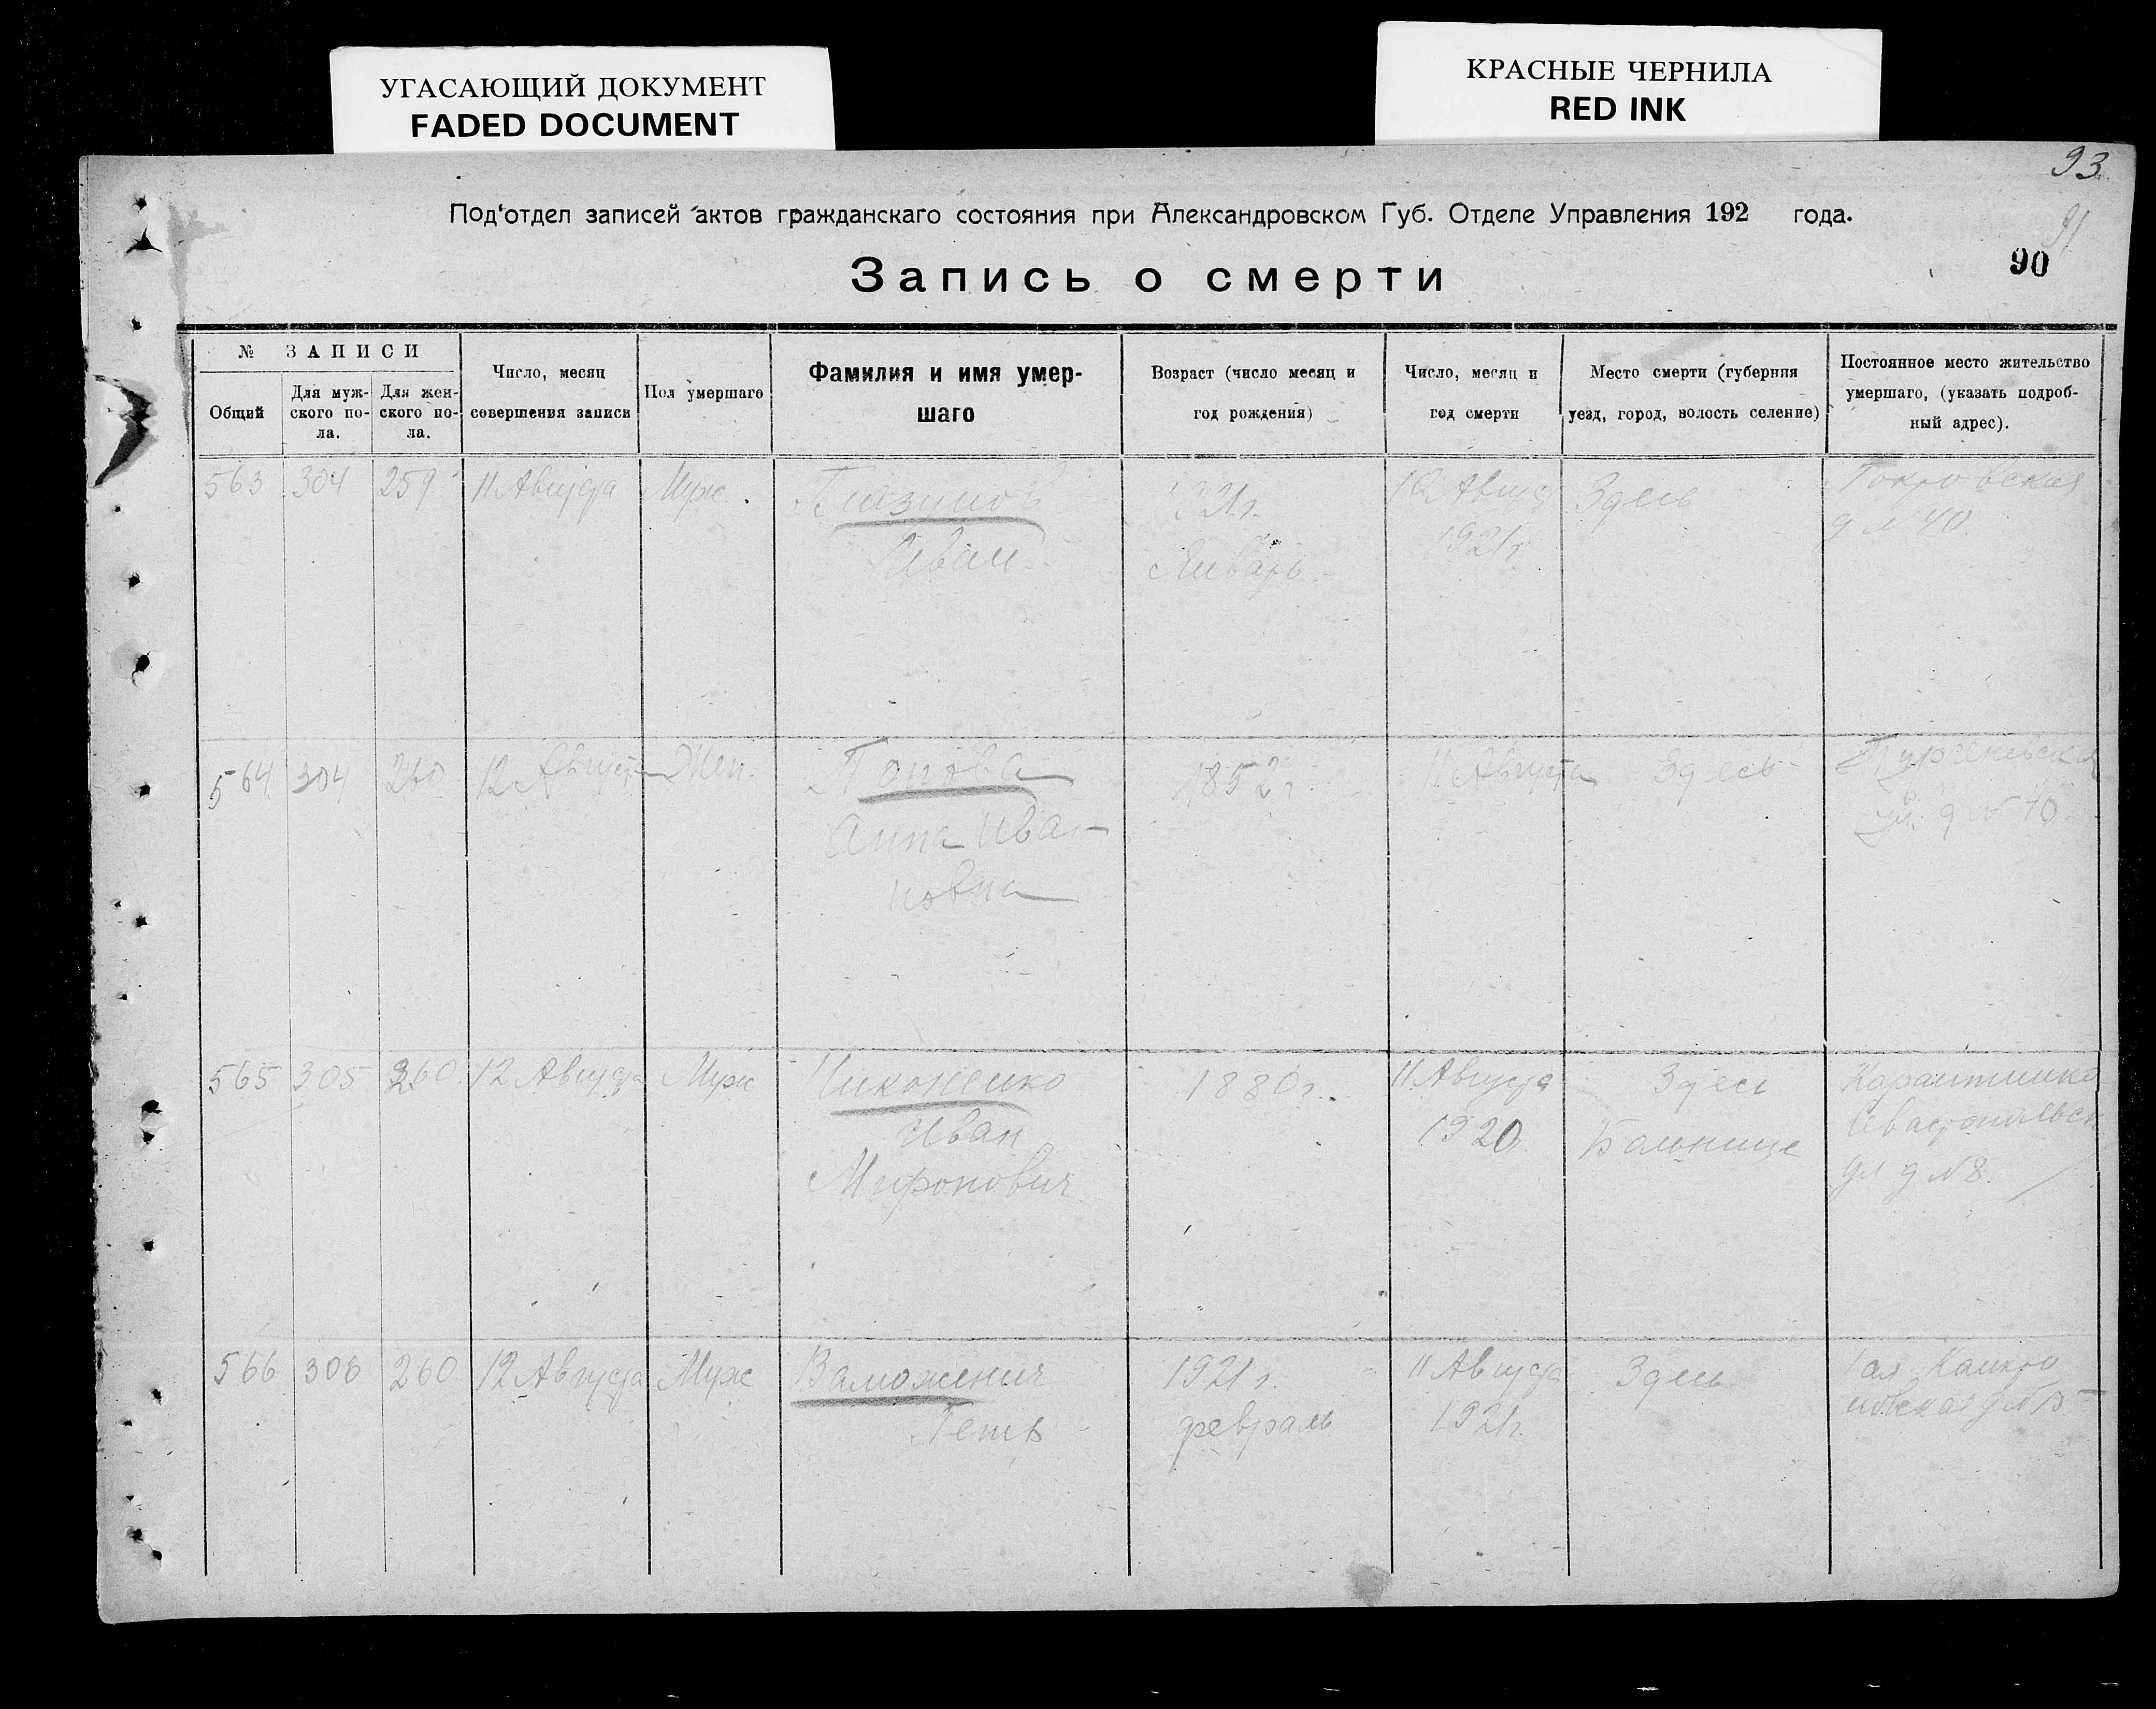 УГАСАЮЩИЙ ДОКУМЕНТ
FADED DOCUMENT
КРАСНЫЕ ЧЕРНИЛА
RED INK
93
Под'отдел записей актов гражданскаго состояния при Александровском Губ. Отделе Управления 192 года.
91
90
Запись о смерти
№ ЗАПИСИ
Общий
Для муж-
ского по-
ла.
Для жен-
ского по-
ла.
Число, месяц
совершения записи
Пол умершаго
Фамилия и имя умер-
шаго
Возраст (число месяц и
год рождения)
Число, месяц и
год смерти
Место смерти (губерния
уезд, город, волость селение)
Постоянное место жительство
умершаго, (указать подроб-
ный адрес).
563 304 259 11 Августа Муж. Глазунов 1921г. 10 Август Здесь Покровская
Иван Январь 1921г. д № 40
564 304 260 12 Августа Жен. Попова 1852г. 11 Августа Здесь
Анна Ива-
новна
ул. д № 10
565 305 260 12 Августа Муж 1880г. 11 Августа Здесь
Иван 1920 Больнице
Миронович ул д № 8.
566 306 260 12 Августа Муж 1921г. 11 Августа Здесь 1ая
февраль 1921г.